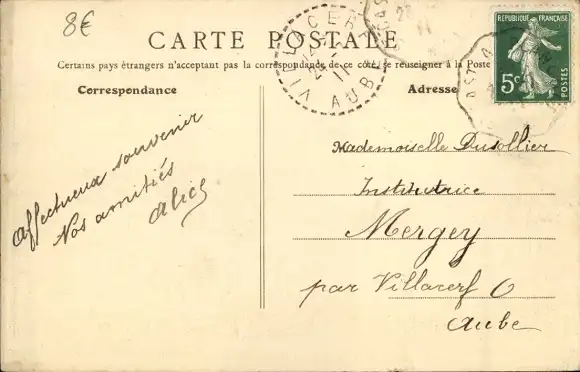 8€
CARTE POSTALE
Certains pays étrangers n'acceptant pas la correspondance de ce côté, se renseigner à la Poste
Correspondance
Adresse
RÉPUBLIQUE FRANÇAISE
5c
POSTES
VILLACERF
24
11
AUBE
Affectueux souvenir
Nos amitiés
Alice
Mademoiselle Dusollier
Institutrice
Mergey
par Villacerf
Aube